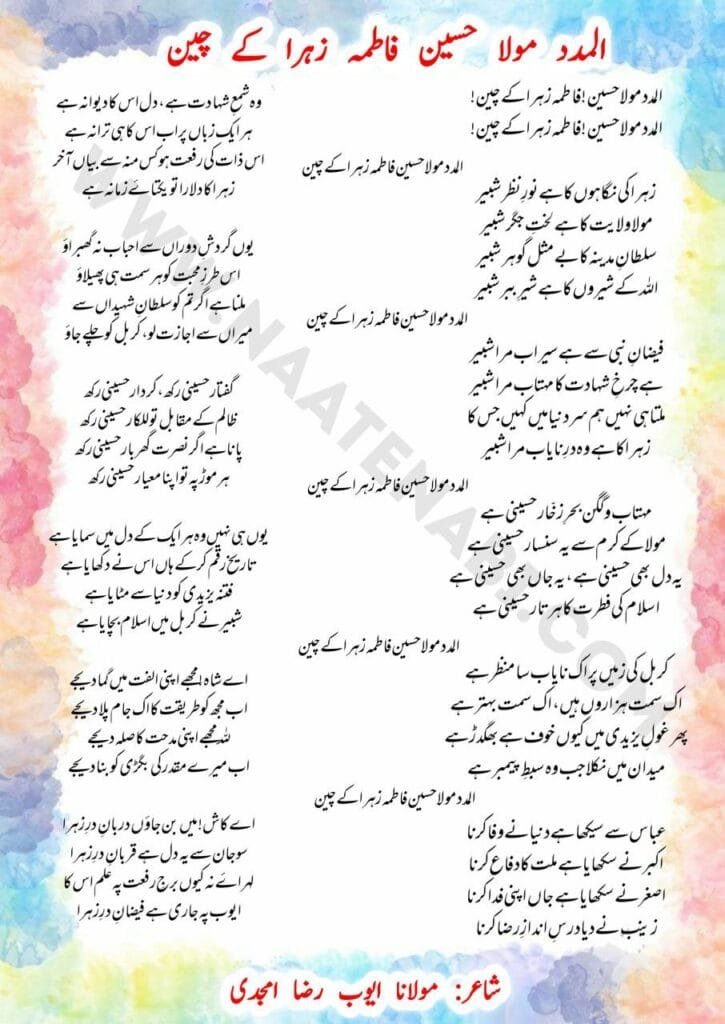 المدد مولا حسین فاطمہ زہرا کے چین
المدد مولا حسین! فاطمہ زہرا کے چین!
المدد مولا حسین! فاطمہ زہرا کے چین!
المدد مولا حسین فاطمہ زہرا کے چین
زہرا کی نگاہوں کا ہے نورِ نظر شبیر
مولا ولایت کا ہے لختِ جگر شبیر
سلطانِ مدینہ کا بے مثل گوہر شبیر
اللہ کے شیروں کا ہے شیرِ ببر شبیر
المدد مولا حسین فاطمہ زہرا کے چین
فیضانِ نبی سے ہے سیراب مرا شبیر
ہے چرخِ شہادت کا مہتاب مرا شبیر
ملتا ہی نہیں ہم سر دنیا میں کہیں جس کا
زہرا کا ہے وہ درِ نایاب مرا شبیر
المدد مولا حسین فاطمہ زہرا کے چین
مہتاب و گگن بحرِ زخّار حسینی ہے
مولا کے کرم سے یہ سنسار حسینی ہے
یہ دل بھی حسینی ہے، یہ جاں بھی حسینی ہے
اسلام کی فطرت کا ہر تار حسینی ہے
المدد مولا حسین فاطمہ زہرا کے چین
کربل کی زمیں پر اک نایاب سا منظر ہے
اک سمت ہزاروں ہیں، اک سمت بہتر ہے
پھر غولِ یزیدی میں کیوں خوف ہے بھگدڑ ہے
میدان میں نکلا جب وہ سبطِ پیمبر ہے
المدد مولا حسین فاطمہ زہرا کے چین
عباس سے سیکھا ہے دنیا نے وفا کرنا
اکبر نے سکھایا ہے ملت کا دفاع کرنا
اصغر نے سکھایا ہے جاں اپنی فدا کرنا
زینب نے دیا درسِ اندازِ رضا کرنا
وہ شمعِ شہادت ہے، دل اس کا دیوانہ ہے
ہر ایک زباں پر اب اس کا ہی ترانہ ہے
اس ذات کی رفعت ہو کس منہ سے بیاں آخر
زہرا کا دلارا تو یکتائے زمانہ ہے
یوں گردشِ دوراں سے احباب نہ گھبراؤ
اس طرزِ محبت کو ہر سمت ہی پھیلاؤ
ملنا ہے اگر تم کو سلطانِ شہیداں سے
میراں سے اجازت لو، کربل کو چلے جاؤ
گفتار حسینی رکھ، کردار حسینی رکھ
ظالم کے مقابل تو للکار حسینی رکھ
پانا ہے اگر نصرت گھر بار حسینی رکھ
ہر موڑ پہ تو اپنا معیار حسینی رکھ
یوں ہی نہیں وہ ہر ایک کے دل میں سمایا ہے
تاریخ رقم کر کے ہاں اس نے دکھایا ہے
فتنہ یزیدی کو دنیا سے مٹایا ہے
شبیر نے کربل میں اسلام بچایا ہے
اے شاہ! مجھے اپنی الفت میں گما دیجے
اب مجھ کو طریقت کا اک جام پلا دیجے
للہ مجھے اپنی مدحت کا صلہ دیجے
اب میرے مقدر کی بگڑی کو بنا دیجے
اے کاش! میں بن جاؤں دربانِ درِ زہرا
سو جان سے یہ دل ہے قربانِ درِ زہرا
لہرائے نہ کیوں برجِ رفعت پہ علم اس کا
ایوب پہ جاری ہے فیضانِ درِ زہرا
شاعر: مولانا ایوب رضا امجدی
WWW.NAATENABI.COM